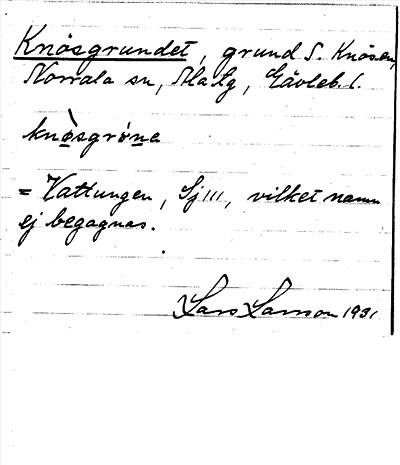 Knösgrundet, grund S. Knösen,
Norrala sn, Ala tg, Gävleb. l.
knòsgrùna
= Kattungen, Sj 111, vilket namn
ej begagnas.
Lars Larsson 1931